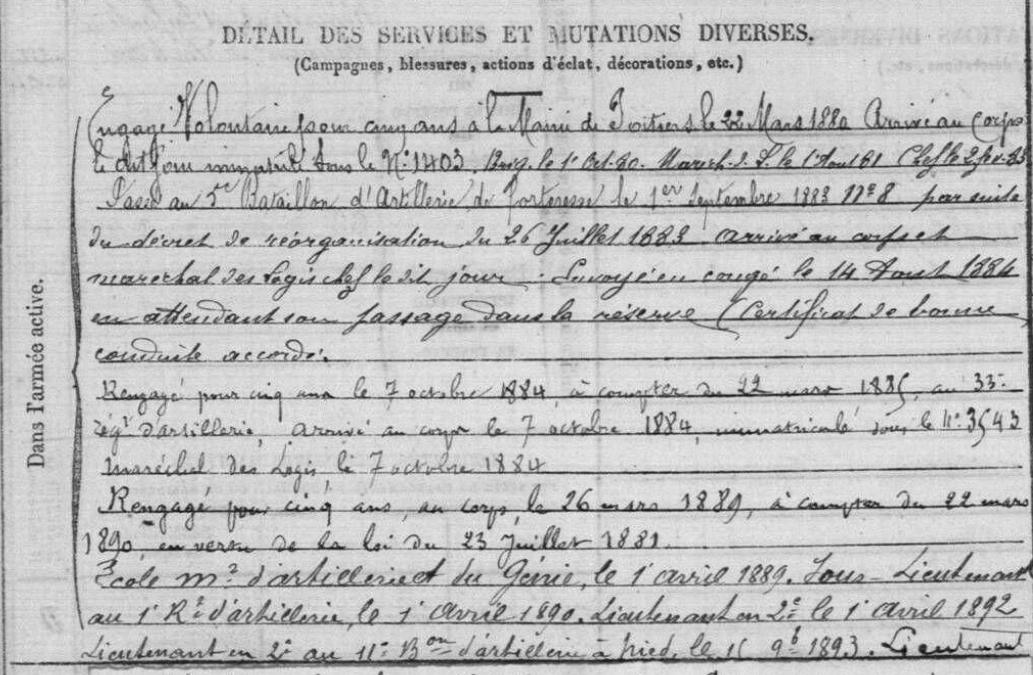 DÉTAIL DES SERVICES ET MUTATIONS DIVERSES.
(Campagnes, blessures, actions d'éclat, décorations, etc.)
Dans l'armée active.
Engagé Volontaire pour cinq ans à la Mairie de Poitiers le 22 Mars 1880 Arrivé au Corps
le dit jour immatriculé sous le N° 1403. Brig. le 1er Oct. 80. Marech. d. L. le 1 Aout 81 Chef le 2
Passé au 5me Bataillon d'Artillerie de Forteresse le 1er Septembre 1883 N° 8 par suite
du décret de réorganisation du 26 Juillet 1883. Arrivé au corps et
marechal des Logis chef le dit jour. Envoyé en congé le 14 Aout 1884
en attendant son passage dans la réserve (Certificat de bonne
conduite accordé.
Rengagé pour cinq ans le 7 octobre 1884, à compter du 22 mars 1885, au 33e
régt d'artillerie, arrivé au corps le 7 octobre 1884, immatriculé sous le N° 3543
Maréchal des Logis le 7 octobre 1884
Rengagé pour cinq ans, au corps, le 26 mars 1889, à compter du 22 mars
1890, en vertu de la loi du 23 Juillet 1881.
École mre d'artillerie et du Génie, le 1er avril 1889. Sous-Lieutenant
au 1er Rt d'artillerie, le 1er Avril 1890. Lieutenant en 2e le 1er avril 1892
Lieutenant en 2e au 11e Bon d'artillerie à pied, le 9b 1893. Lieutenant